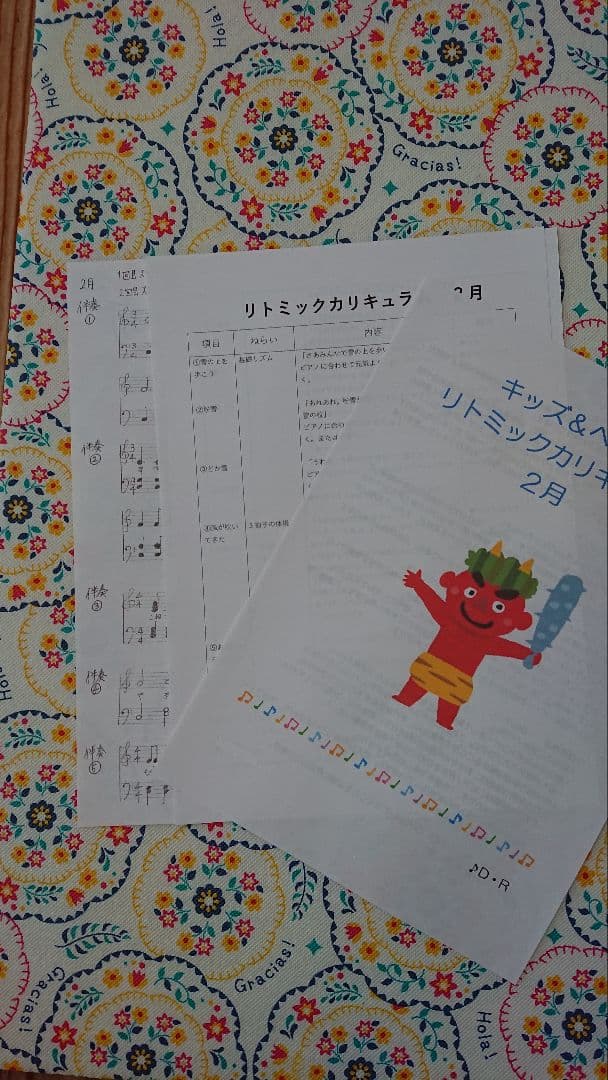 Hola!
Hola!
Gracias!
2月
伴奏
①
伴奏
②
伴奏
③
伴奏
④
伴奏
⑤
リトミックカリキュラ
2月
項目 ねらい 内容
①雪の上を 基礎リズム 「さあみんなで雪の上を歩
歩こう ピアノに合わせて元気よ
く。
②粉雪 「あれあれ、粉雪
雪の粒」
ピアノに合わ
く。または
③どか雪 「うわ
ピア
④風が吹い 3拍子の体得
てきた
⑤
キッズ&ベ
リトミックカリキ
2月
♪D・R
Hola!
Gracias!
Gracias!
Hola!